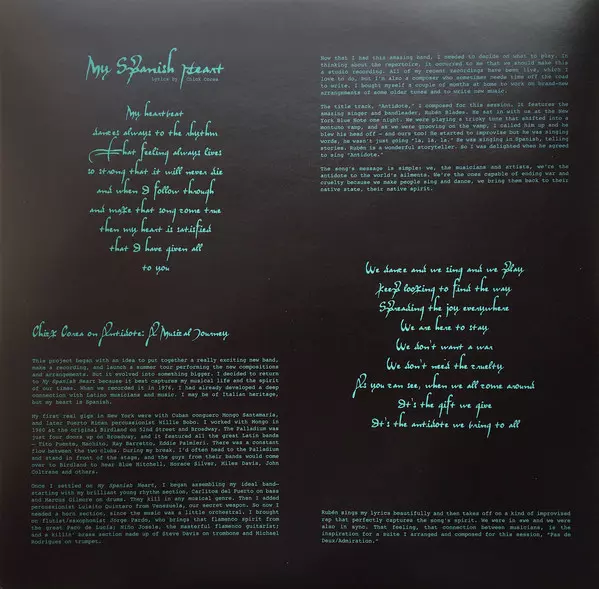 My Spanish Heart
lyrics by Chick Corea
My heartbeat
dances always to the rhythm
That feeling always lives
so strong that it will never die
and when I follow through
and make that song come true
then my heart is satisfied
that I have given all
to you
Chick Corea on Antidote: A Musical Journey
This project began with an idea to put together a really exciting new band,
make a recording, and launch a summer tour performing the new compositions
and arrangements. But it evolved into something bigger. I decided to return
to My Spanish Heart because it best captures my musical life and the spirit
of our times. When we recorded it in 1976, I had already developed a deep
connection with Latino musicians and music. I may be of Italian heritage,
but my heart is Spanish.
My first real gigs in New York were with Cuban conguero Mongo Santamaria,
and later Puerto Rican percussionist Willie Bobo. I worked with Mongo in
1960 at the original Birdland on 52nd Street and Broadway. The Palladium was
just four doors up on Broadway, and it featured all the great Latin bands
– Tito Puente, Machito, Ray Barretto, Eddie Palmieri. There was a constant
flow between the two clubs. During my break, I'd often head to the Palladium
and stand in front of the stage, and the guys from their bands would come
over to Birdland to hear Blue Mitchell, Horace Silver, Miles Davis, John
Coltrane and others.
Once I settled on My Spanish Heart, I began assembling my ideal band—
starting with my brilliant young rhythm section, Carlitos del Puerto on bass
and Marcus Gilmore on drums. They kill in any musical genre. Then I added
percussionist Luisito Quintero from Venezuela, our secret weapon. So now I
needed a horn section, since the music was a little orchestral. I brought
on flutist/saxophonist Jorge Pardo, who brings that flamenco spirit from
the great Paco de Lucía; Niño Josele, the masterful flamenco guitarist;
and a killin' brass section made up of Steve Davis on trombone and Michael
Rodriguez on trumpet.
Now that I had this amazing band, I needed to decide on what to play. In
thinking about the repertoire, it occurred to me that we should make this
a studio recording. All of my recent recordings have been live, which I
love to do, but I'm also a composer who sometimes needs time off the road
to write. I bought myself a couple of months at home to work on brand-new
arrangements of some older tunes and to write new music.
The title track, "Antidote," I composed for this session. It features the
amazing singer and bandleader, Rubén Blades. He sat in with us at the New
York Blue Note one night. We were playing a tricky tune that shifted into a
montuno vamp, and as we were grooving on the vamp, I called him up and he
blew his head off — and ours too! He started to improvise but he was singing
words, he wasn't just going "la, la, la." He was singing in Spanish, telling
stories. Rubén is a wonderful storyteller. So I was delighted when he agreed
to sing "Antidote."
The song's message is simple: we, the musicians and artists, we're the
antidote to the world's ailments. We're the ones capable of ending war and
cruelty because we make people sing and dance, we bring them back to their
native state, their native spirit.
We dance and we sing and we play
Keep looking to find the way
Spreading the joy everywhere
We are here to stay
We don't want a war
We don't need the cruelty
As you can see, when we all come around
It's the gift we give
It's the antidote we bring to all
Rubén sings my lyrics beautifully and then takes off on a kind of improvised
rap that perfectly captures the song's spirit. We were in awe and we were
also in sync. That feeling, that connection between musicians, is the
inspiration for a suite I arranged and composed for this session, "Pas de
Deux/Admiration."